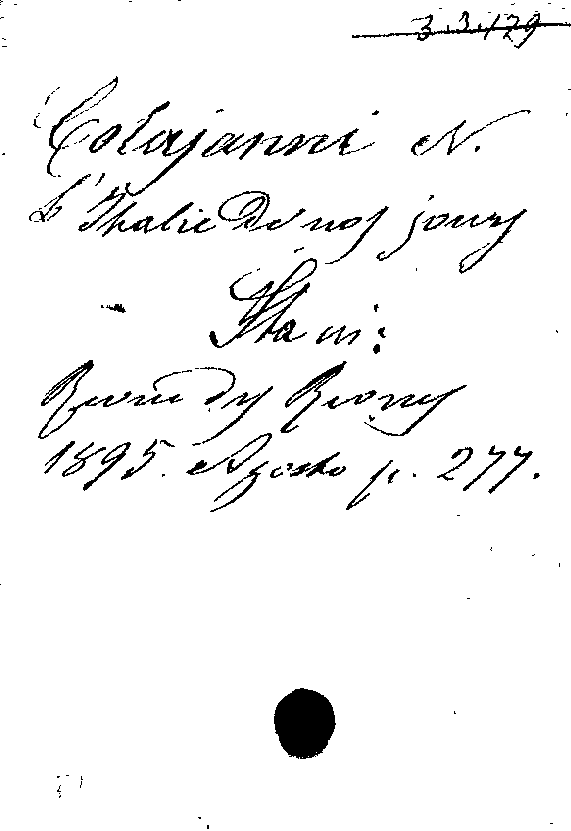 3.3.129
Colajanni N.
L'Italie de nos jours
Sta in:
Revue des Revues
1895. Agosto p. 277.